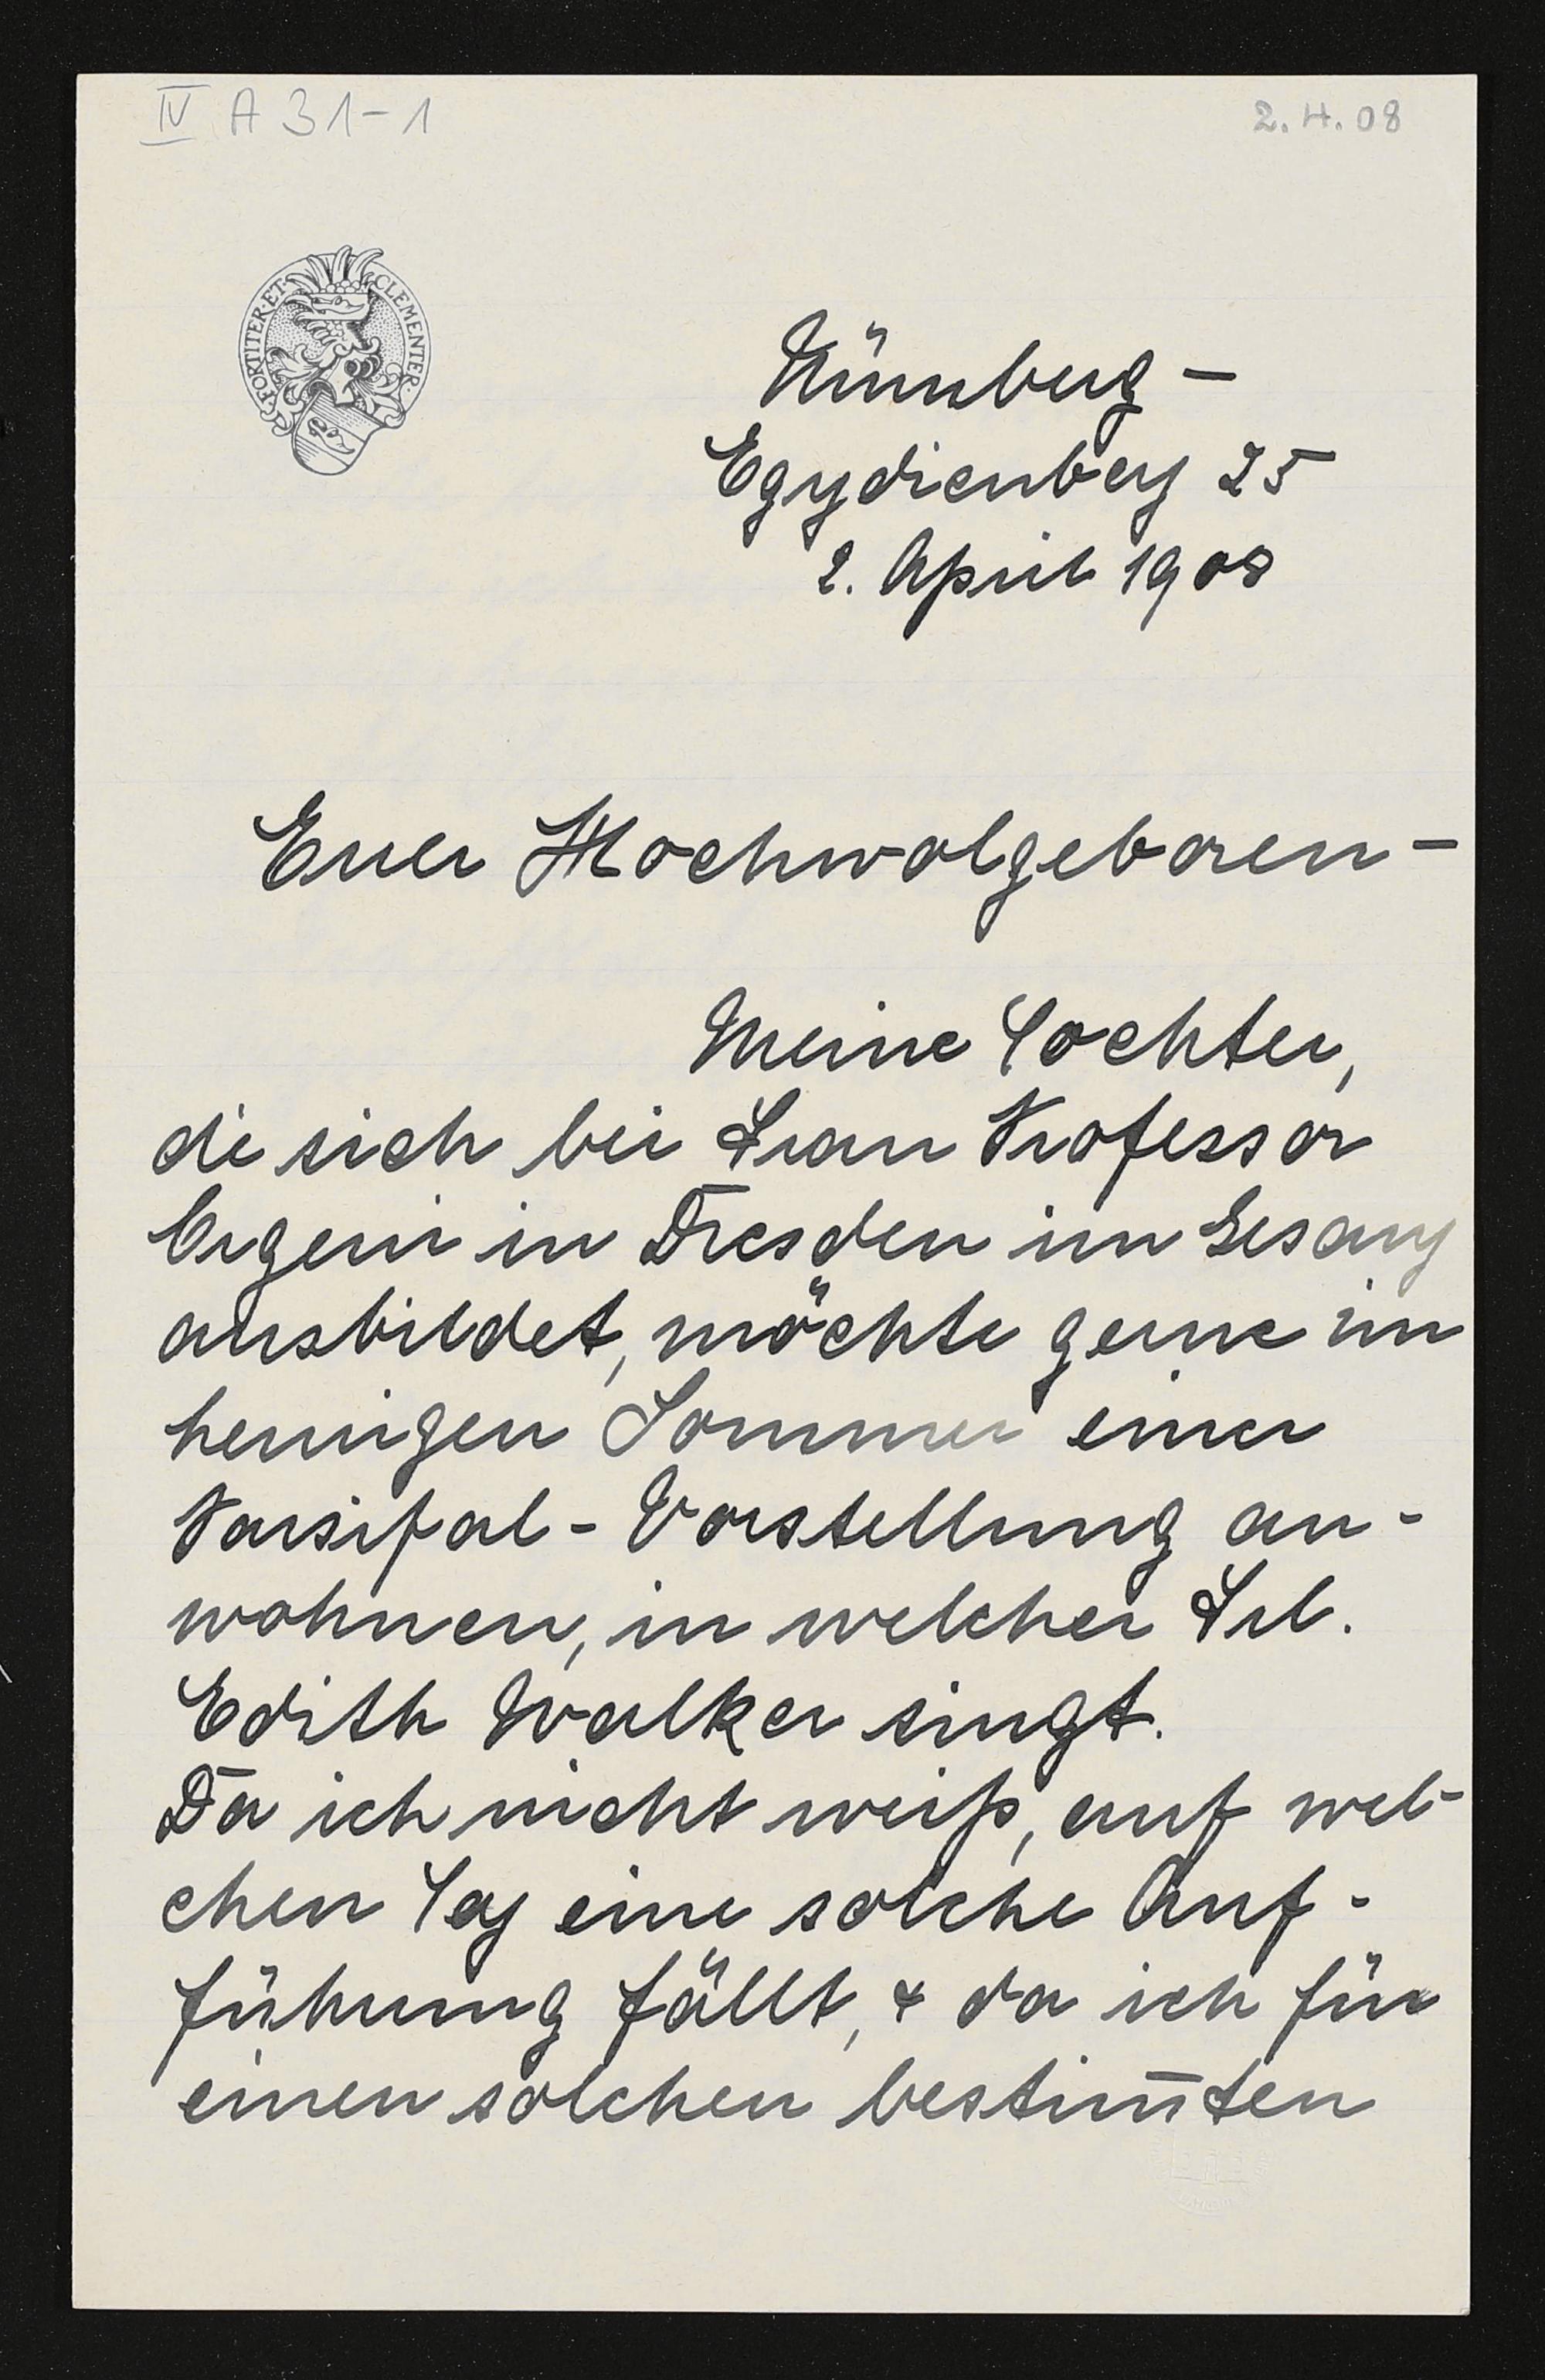 IV A 31-1
2.4.08
FORTITER·ET·CLEMENTER·
Nürnberg –
Egydienberg 25
2. April 1908
Euer Hochwolgeboren –
Meine Tochter,
die sich bei Frau Professor
Orgeni in Dresden im Gesang
ausbildet, möchte gerne im
heurigen Sommer einer
Parsifal-Vorstellung an-
wohnen, in welcher Frl.
Edith Walker singt.
Da ich nicht weiß, auf wel-
chen Tag eine solche Auf-
führung fällt, & da ich für
einen solchen bestim̅ten